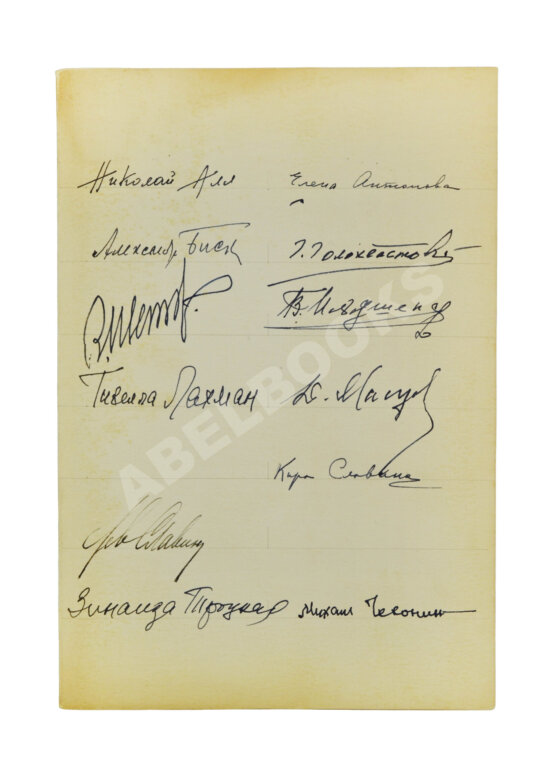 Николай Алл Елена Антонова
Александр Биск Г. Голохвастов
В. Ильяшенко
Гизелла Лахман Д. Магула
Кира Славина
Лев Славин
Зинаида Троцкая Михаил Чехонин
ABELBOOKS